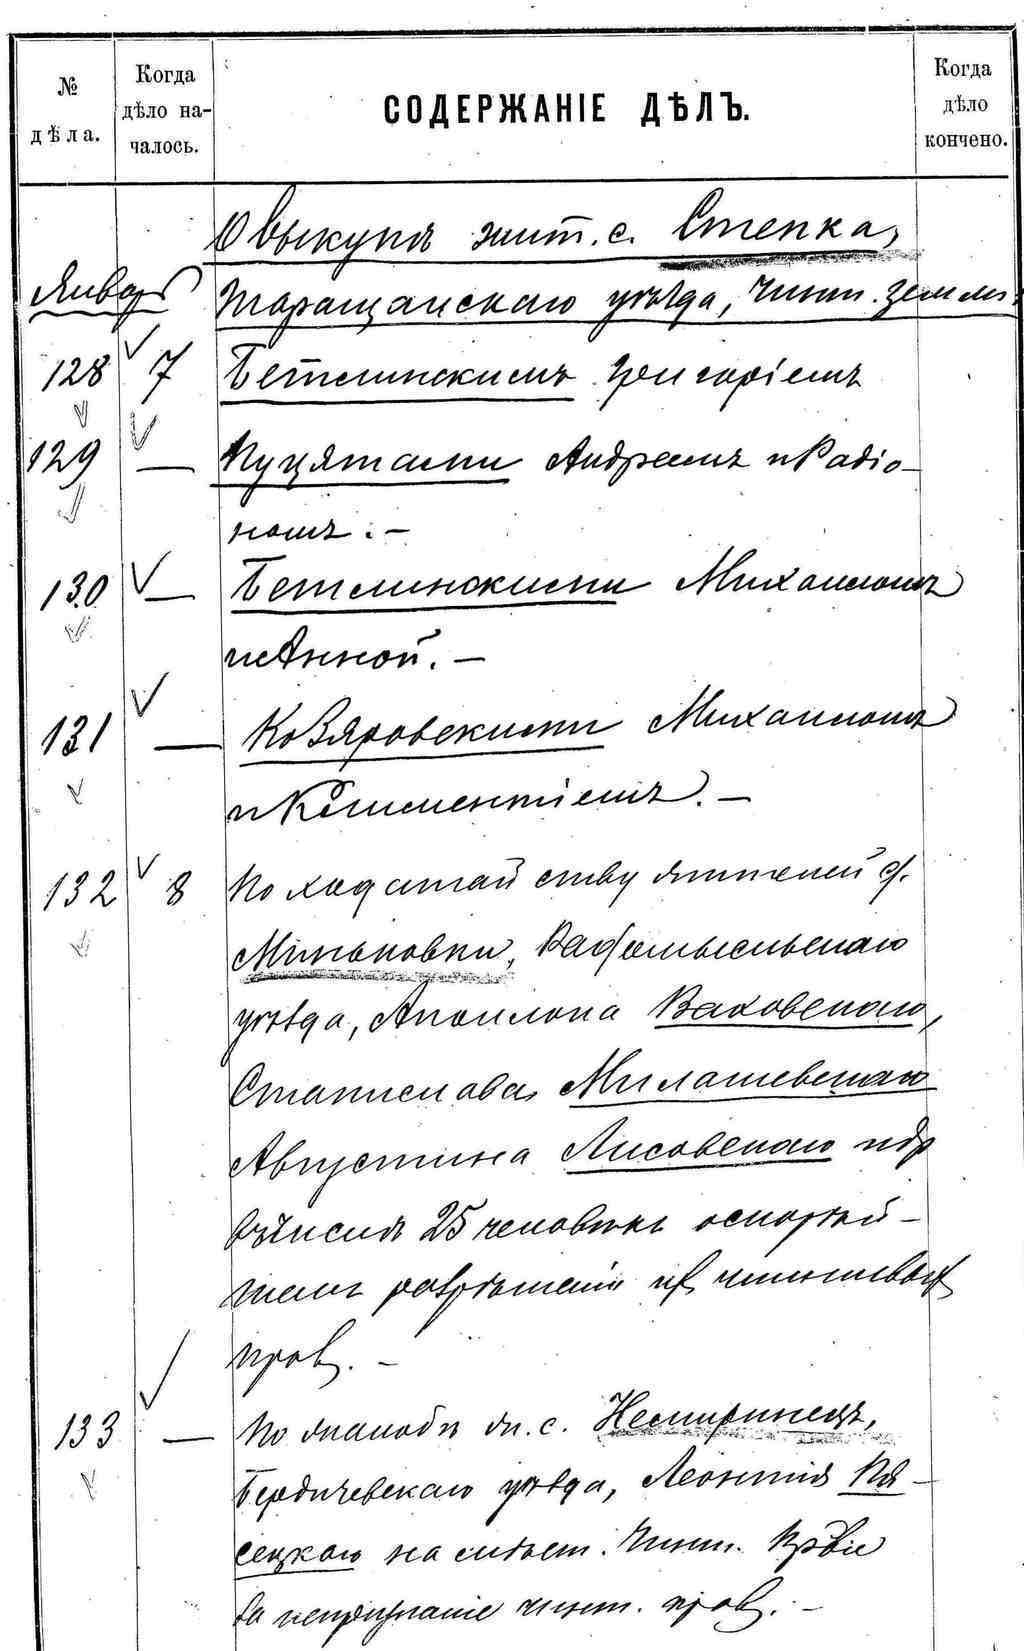 № дѣла.
Когда дѣло началось.
СОДЕРЖАНІЕ ДѢЛЪ.
Когда дѣло кончено.
О выкупѣ жит. с. Степка,
Январь
Таращанскаго уѣзда, Чинш. земли:
128 7 Бетлинскимъ Григоріемъ
129 — Куцятами Андреемъ и Радіо-
номъ. —
130 — Бетлинскими Михаиломъ
и Анной. —
131 — Козяровскими Михаиломъ
и Климентіемъ. —
132 8 По ходатайству жителей д.
Миньковки, Радомысльскаго
уѣзда, Аполлона Ваховскаго,
Станислава Милашевскаго
Августина Лисовскаго и др
въ числѣ 25 человѣкъ
чиншевых
прав. —
133 — По жалобѣ ж. с. Немиринецъ,
Бердичевскаго уѣзда, Леонтія Пя-
сецкаго на мѣст. Чинш. Пр-віе
за непризнаніе чинш. прав. —